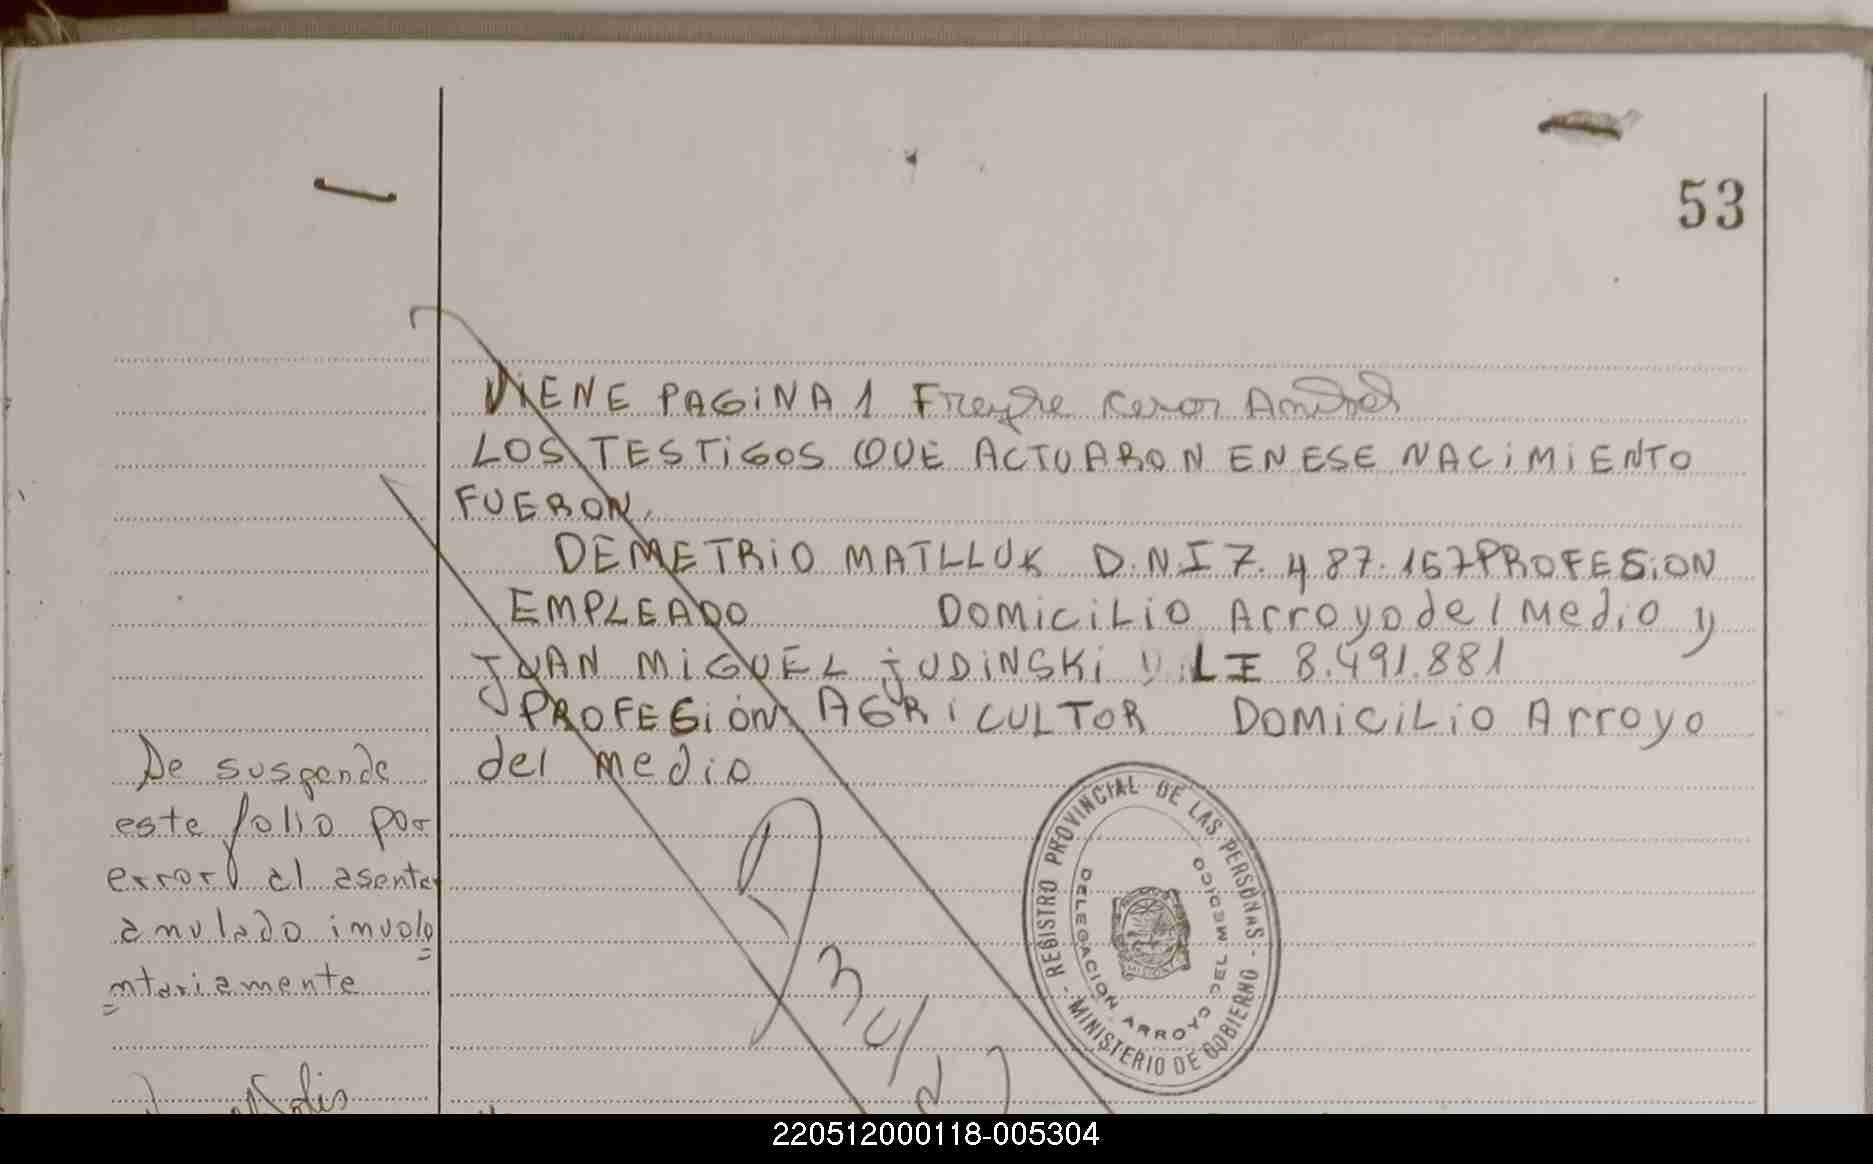 53
VIENE PAGINA 1 Freyre
LOS TESTIGOS QUE ACTUARON EN ESE NACIMIENTO
FUERON.
DEMETRIO MATLLUK D.N.I 7.487.157 PROFESION
EMPLEADO DOMICILIO Arroyo del Medio y
JUAN MIGUEL JUDINSKI LI 8.491.881
PROFESIÓN AGRICULTOR DOMICILIO Arroyo
del medio
De suspende
este folio por
error al asentar
anulado involu
ntariamente
REGISTRO PROVINCIAL DE LAS PERSONAS - MINISTERIO DE GOBIERNO -
DELEGACION ARROYO DEL MEDIO
220512000118-005304